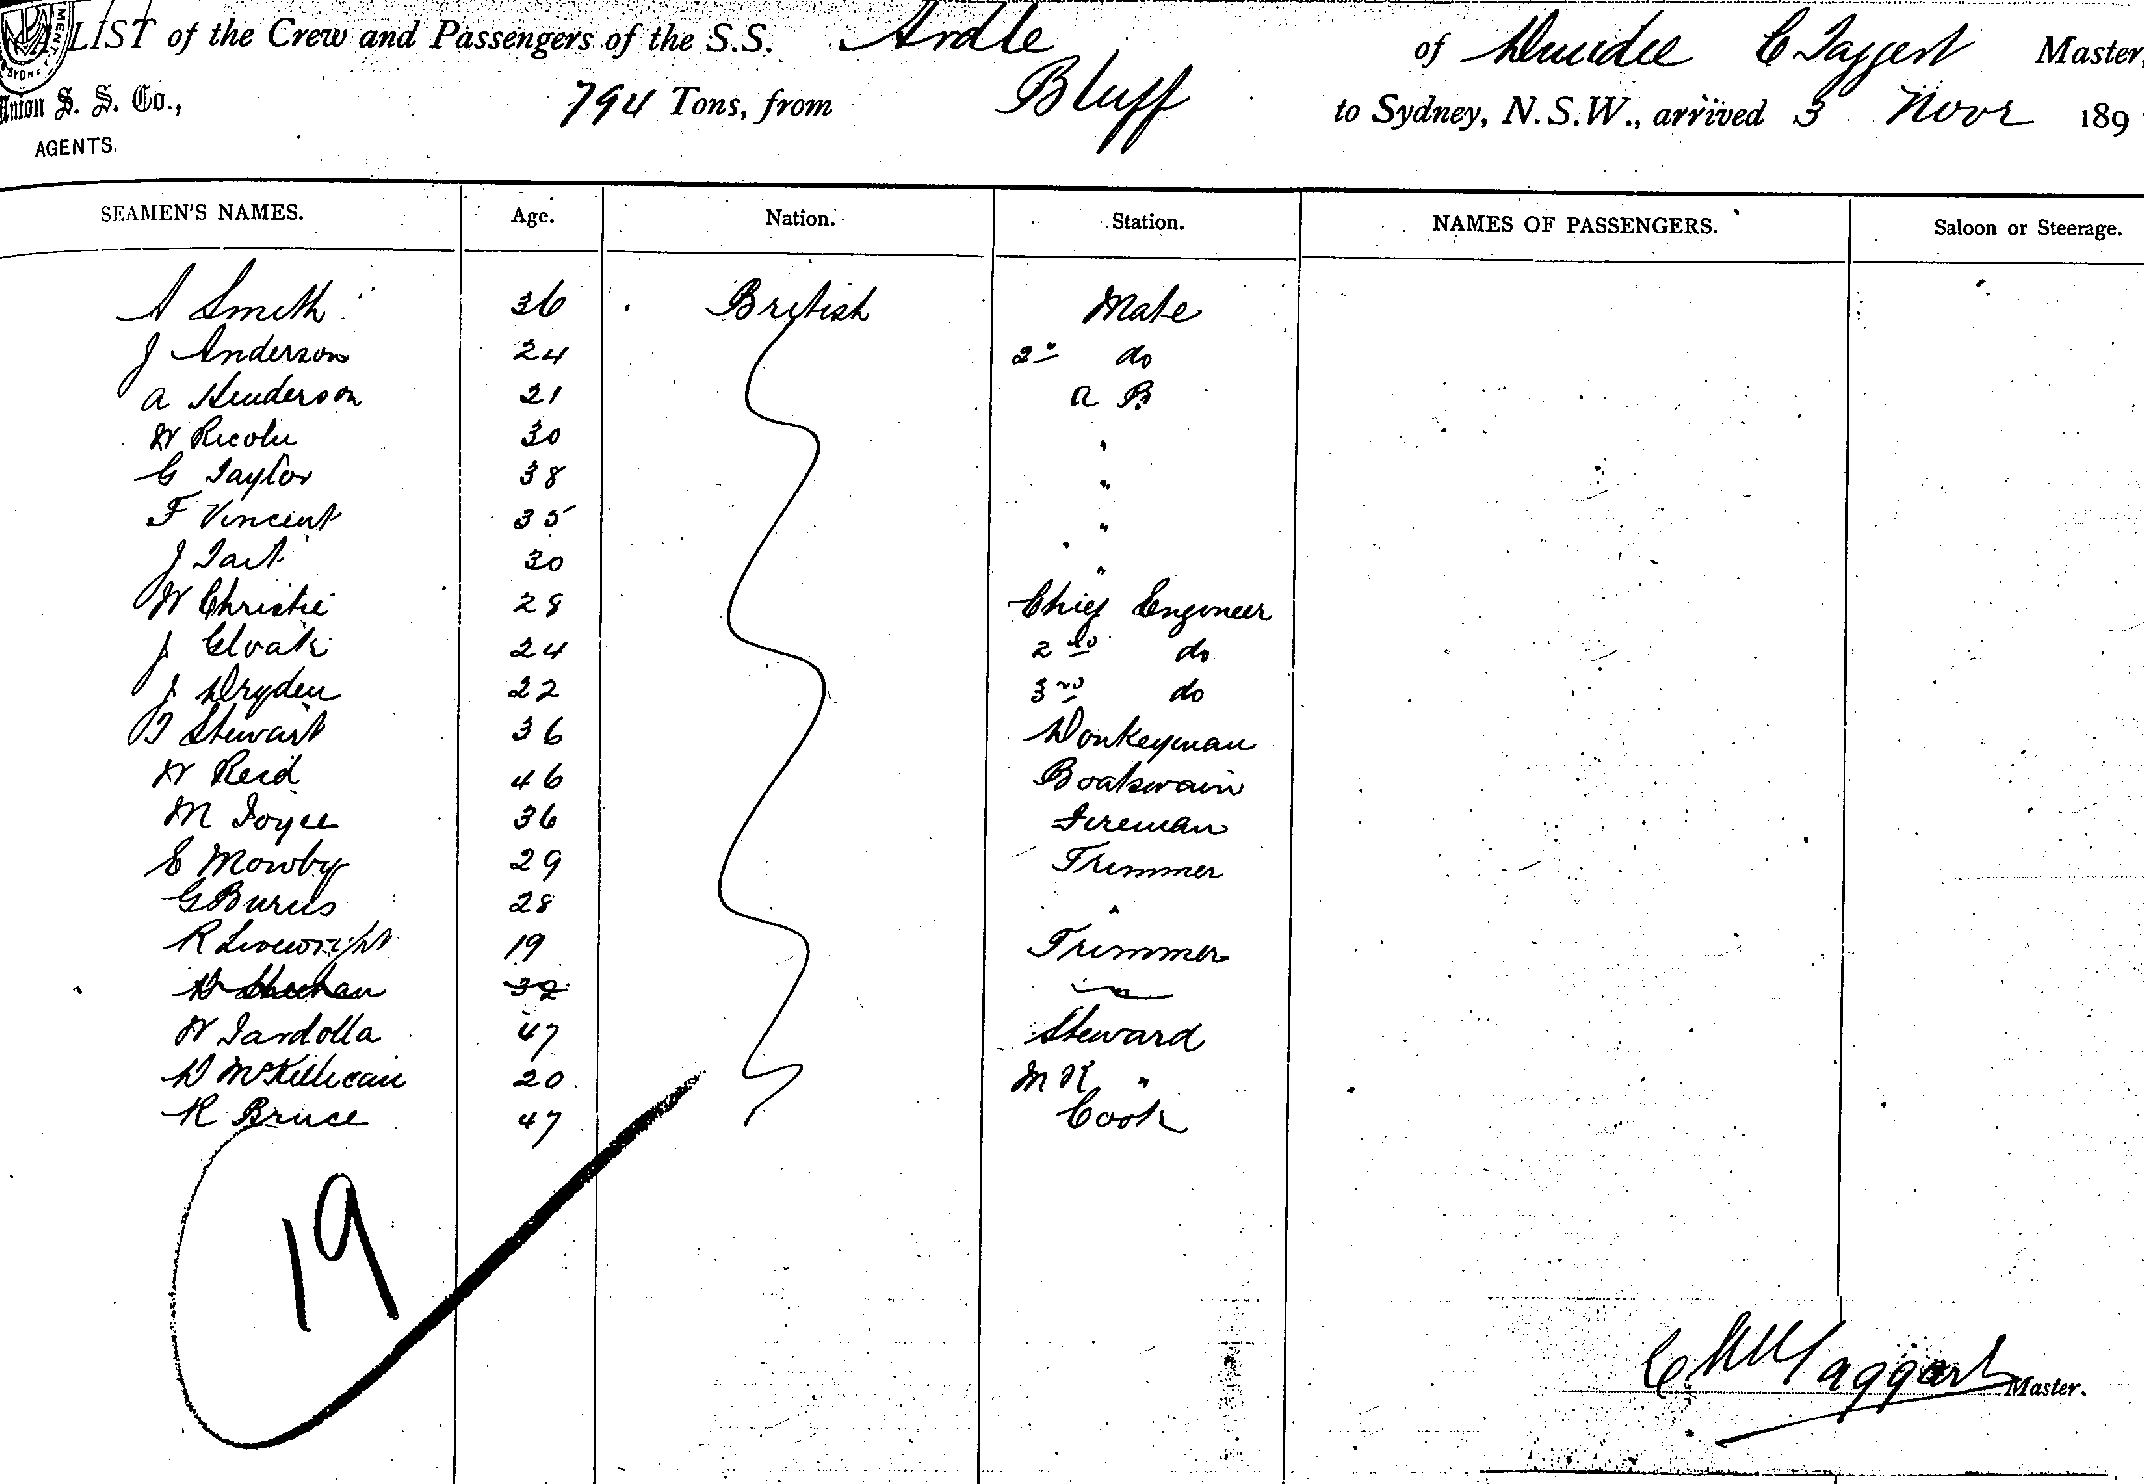 LIST of the Crew and Passengers of the S.S. Ardle of Dundee C Taggert Master,
Union S. S. Co., 794 Tons, from Bluff to Sydney, N.S.W., arrived 3 Novr 189
AGENTS.
SEAMEN'S NAMES. Age. Nation. Station. NAMES OF PASSENGERS. Saloon or Steerage.
A Smith 36 British Mate
J Anderson 24 2° do
A Henderson 21 A B
W 30 "
G Taylor 38 "
F Vincent 35 "
J Tait 30 "
W Christie 28 Chief Engineer
J Cloak 24 2nd do
J Dryden 22 3rd do
T Stewart 36 Donkeyman
W Reid 46 Boatswain
M Joyce 36 Fireman
E Mowby 29 Trimmer
G Burns 28 "
R Sivewright 19 Trimmer
D Sheehan 32
W Tardolla 47 Steward
D McKillican 20 M R "
R Bruce 47 Cook
19
Taggart Master.